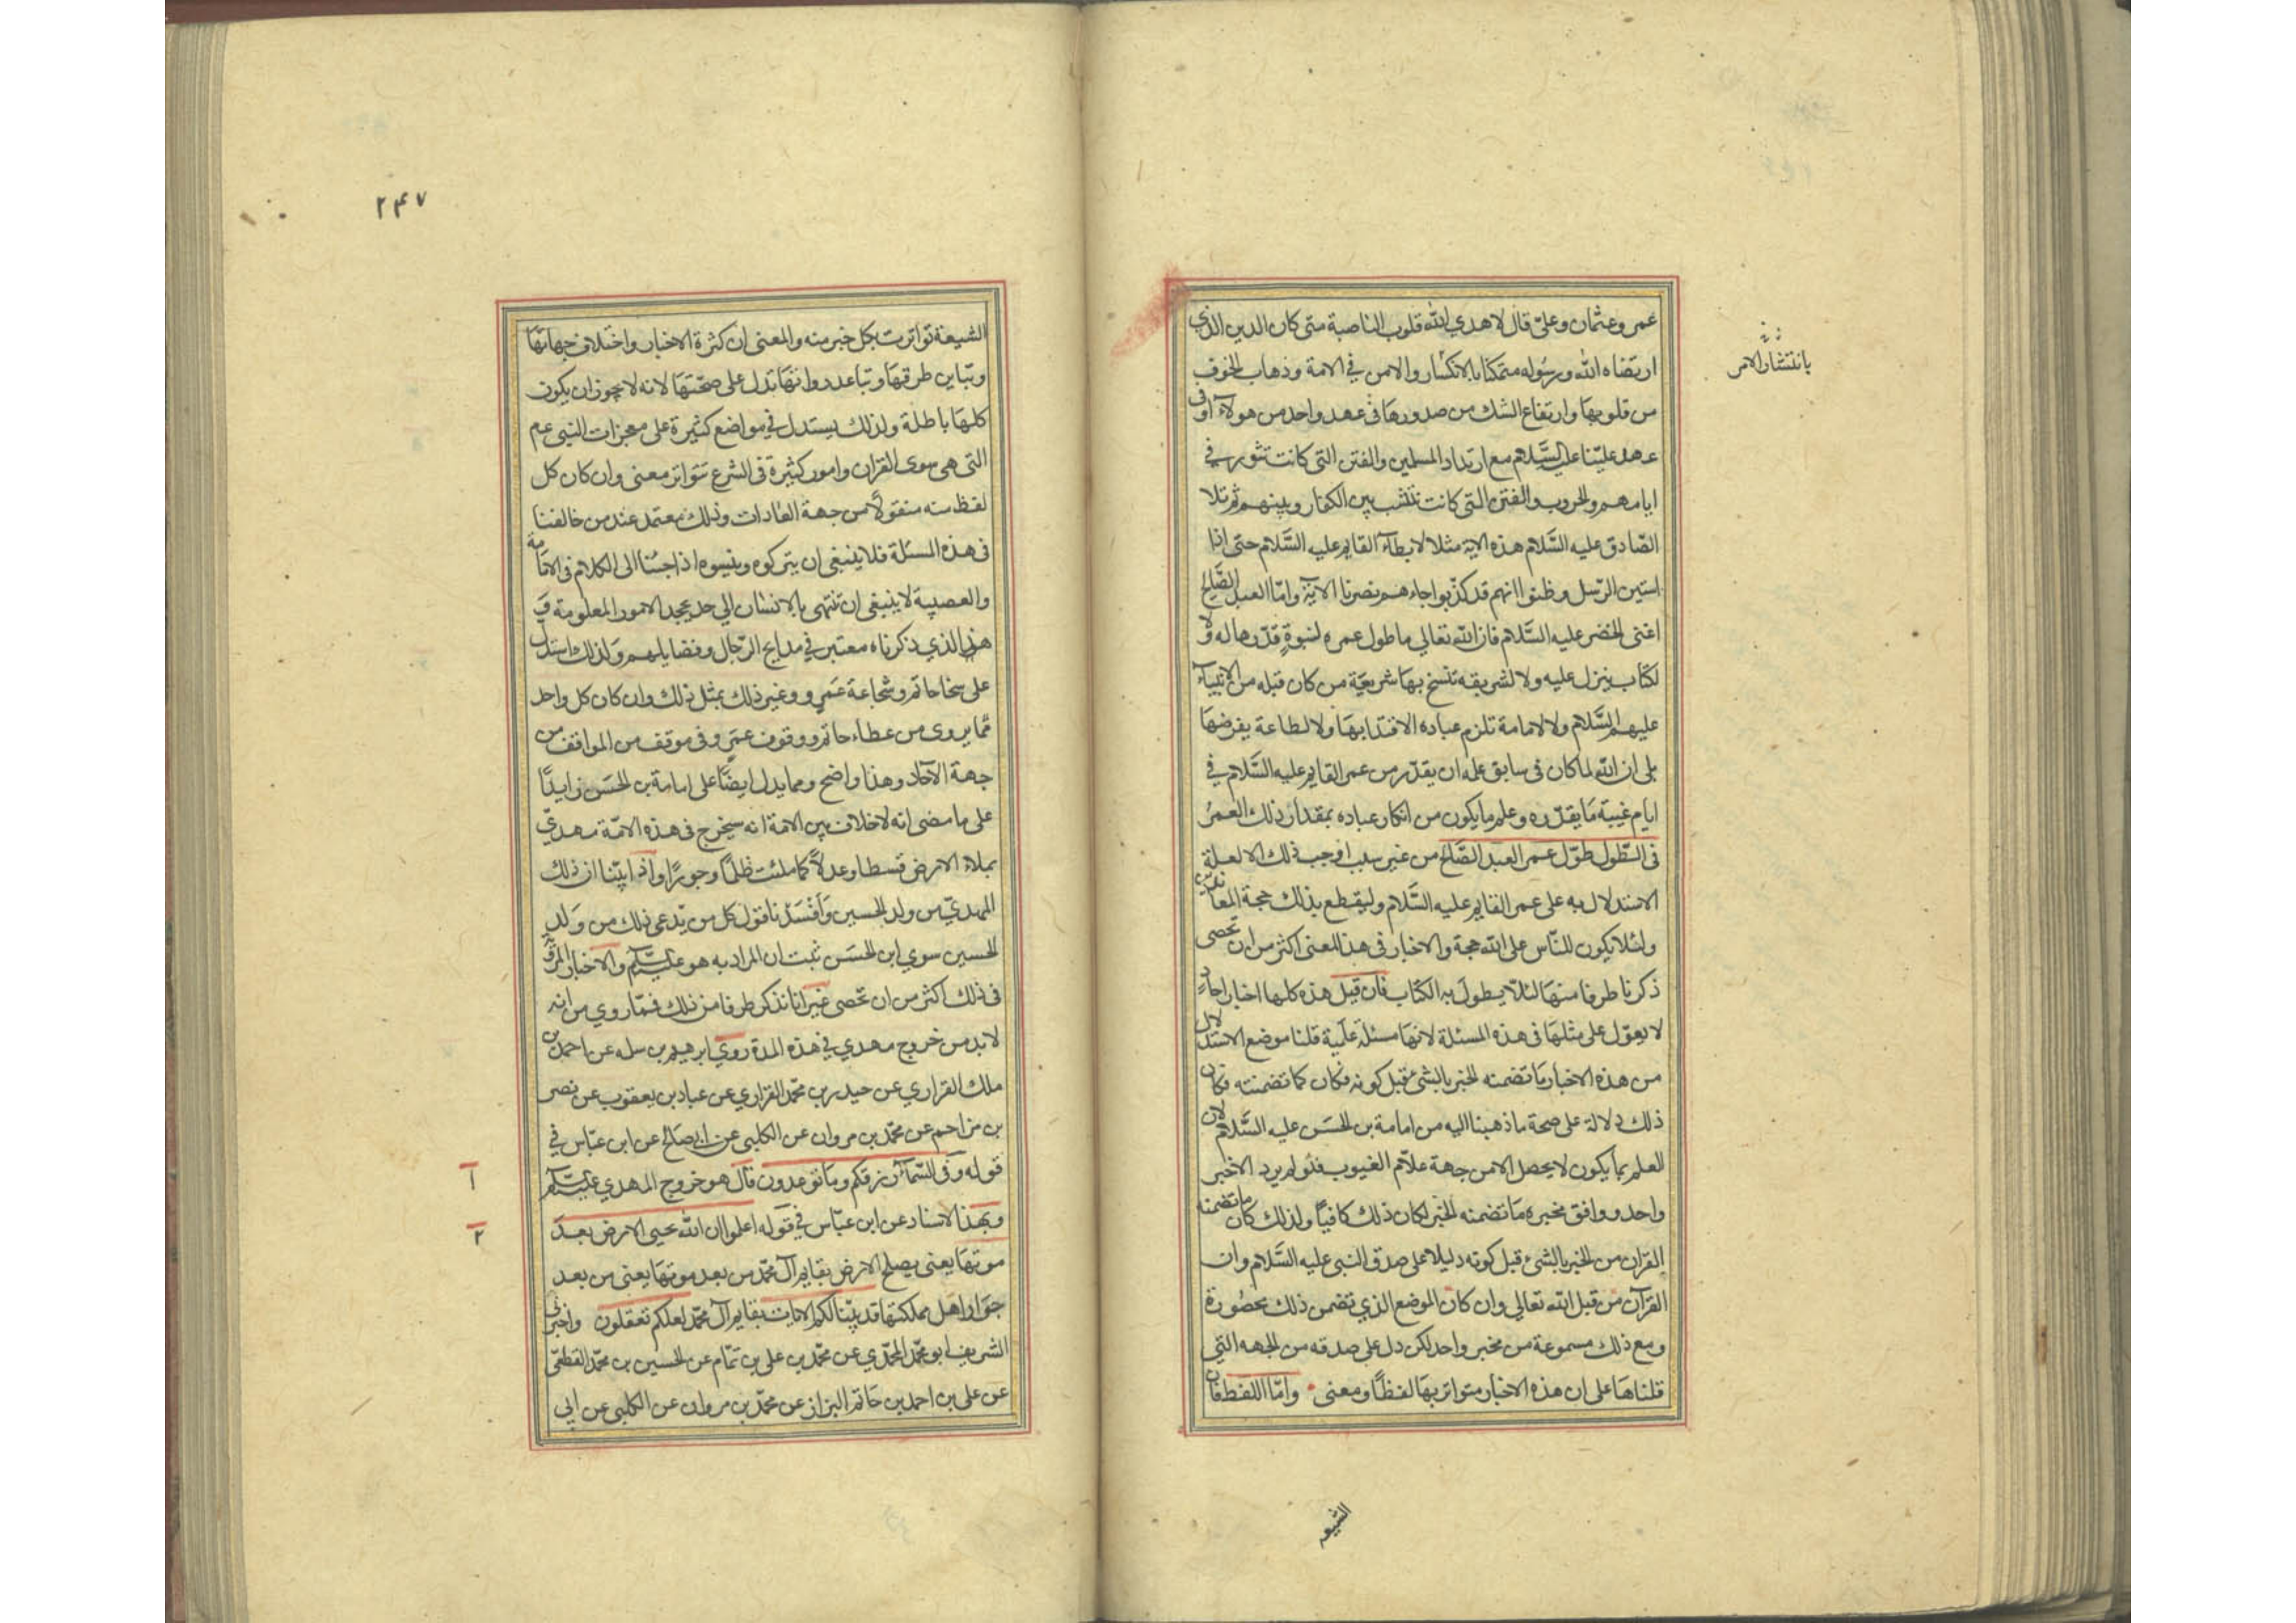 عمر وعثمان وعليّ قال لا هدي الله قلوب الناصبة متى كان الدين الذي
ارتضاه الله ورسُوله متمكنا بالانكسار والامن في الامة وذهاب الخوف
من قلوبها وارتفاع الشك من صدورها في عهد واحد من هولآء او في
عهد علينا عليه السَّلام مع ارتداد المسلمين والفتن التى كانت تثور في
ايامهم والحروب والفتن التى كانت تنشب بين الكفار وبينهم ثم تلا
الصّادق عليه السَّلام هذه الاية مثلا لابطآء القايم عليه السَّلام حتى اذا
استيئس الرّسل وظنوا انهم قد كذّبوا جاءهم نصرنا الاية وامّا العبد الصَّالح
اعنى الخضر عليه السَّلام فان الله تعالي ما طول عمره لنبوةٍ قدّرها له ولا
لكتاب ينزل عليه ولا لشريعه تنسخ بها شريعَة من كان قبله من الانبيآء
عليهم السَّلام ولا لامامة تلزم عباده الاقتدا بها ولا لطاعة يفرضهَا
بلى ان الله لما كان فى سابق علمه ان يقدّر من عمر القايم عليه السَّلام في
ايام غيبة مَا يقدّره وعلم ما يكون من انكار عباده بمقدار ذلك العمُر
فى الطّول طوّل عمر العبد الصَّالح من غير سبب اوجب ذلك الا لعلة
الاستدلال به على عمر القايم عليه السَّلام وليقطع بذلك حجة المعاندين
ولئلا يكون للنّاس على الله حجة والاخبار فى هذا المعنى اكثر من ان تحصى
ذكرنا طرفا منهَا لئلّا يطول به الكتاب فان قيل هذه كلها اخبار احاد
لا يعوّل على مثلهَا فى هذه المسئلة لانهَا مسئلة علمية قلنا موضع الاستدلال
من هذه الاخبار مَا تضمنه الخبر بالشئ قبل كونه فكان كما تضمنته فكان
ذلك دلالة على صحة ما ذهبنا اليه من امامة بن الحسَن عليه السَّلام لان
العلم بما يكون لا يحصل الا من جهة علّام الغيوب فلو لم يرد الا خبر
واحد ووافق مخبره مَا تضمنه الخبر لكان ذلك كافيًا ولذلك كان ما تضمنه
القران من الخبر بالشئ قبل كونه دليلا على صدق النبي عليه السَّلام وان
القرآن من قبل الله تعالي وان كان الموضع الذي تضمن ذلك محصُورة
ومع ذلك مسموعة من مخبر واحد لكن دل على صدقه من الجهه التي
قلناهَا على ان هذه الاخبار متواتر بهَا لفظًا ومعنى وامّا اللفظ فان
بانتشار الامر
الشيعه
۲۴۷
الشيعة تواترت بكل خبر منه والمعنى ان كثرة الاخبار واختلاف جهاتهَا
وتباين طرقهَا وتباعد رواتهَا تدل على صحّتهَا لانه لا يجوز ان يكون
كلهَا باطلة ولذلك يستدل في مواضع كثيرة على معجزات النبي عم
التى هى سوى القران وامور كثيرة فى الشرع تتواتر معنى وان كان كل
لفظ منه منقولًا من جهة الاحادات وذلك معتمد عند من خالفنا
فى هذه المسئلة فلا ينبغى ان يتركوه وينسوه اذا جئنا الى الكلام فى الامامة
والعصبية لا ينبغى ان تنتهى بالانسان الي حد يجحد الامور المعلومة و
هذا الذي ذكرناه معتبر في مدايح الرّجال وفضايلهم وَلذلك استدل
على سخا حاتم وشجاعة عَمرٍو وغير ذلك بمثل ذلك وان كان كل واحد
ممّا يروى من عطاء حاتم ووقوف عمرٍو فى موقف من المواقف من
جهة الآحاد وهذا واضح ومما يدل ايضًا على امامة بن الحسَن زايدًا
على ما مضى انه لا خلاف بين الامة انه سيخرج فى هذه الامّة مهديّ
يملاء الارض قسطا وعدلًا كما ملئت ظلمًا وجورًا واذا بيّنا ان ذلك
المهديّ من ولد الحسين وَأفْسَدنا قول كل من يدّعي ذلك من وَلدِ
الحسين سوي ابن الحسَن ثبت ان المراد به هو عليه السلم والاخبار المرويّة
فى ذلك اكثر من ان تحصى غير انا نذكر طرفا من ذلك فممّا روي من انه
لا بد من خروج مهدي في هذه المدة روي ابرهيم بن سله عن احمد بن
ملك الفزاري عن حيدر بن محمّد الفزاري عن عباد بن يعقوب عن نصر
بن مزاحم عن محمّد بن مروان عن الكلبى عن ابى صَالح عن ابن عبّاس في
قوله وفى السّمآء رزقكم وما توعدون قال هو خروج المهدي عليه السلم
وبهذا الاسناد عن ابن عبّاس في قوله اعلموا ان الله يحيى الارض بعدَ
موتهَا يعنى يصلح الارض بقايم آل محمّد من بعد موتهَا يعنى من بعد
جوَار اهل مملكتهَا قد بيّنا لكم الايات بقايم آل محمّد لعلكم تعقلون واخبرنى
الشريف ابو محمّد المحمّدي عن محمّد بن على بن تمّام عن الحسين بن محمّد القطعىّ
عن على بن احمد بن حَاتم البزاز عن محمّد بن مروان عن الكلبى عن ابي
ا
۲